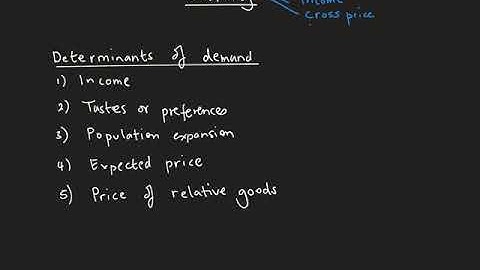 income
cross price
Determinants of demand
1) Income
2) Tastes or preferences
3) Population expansion
4) Expected price
5) Price of relative goods